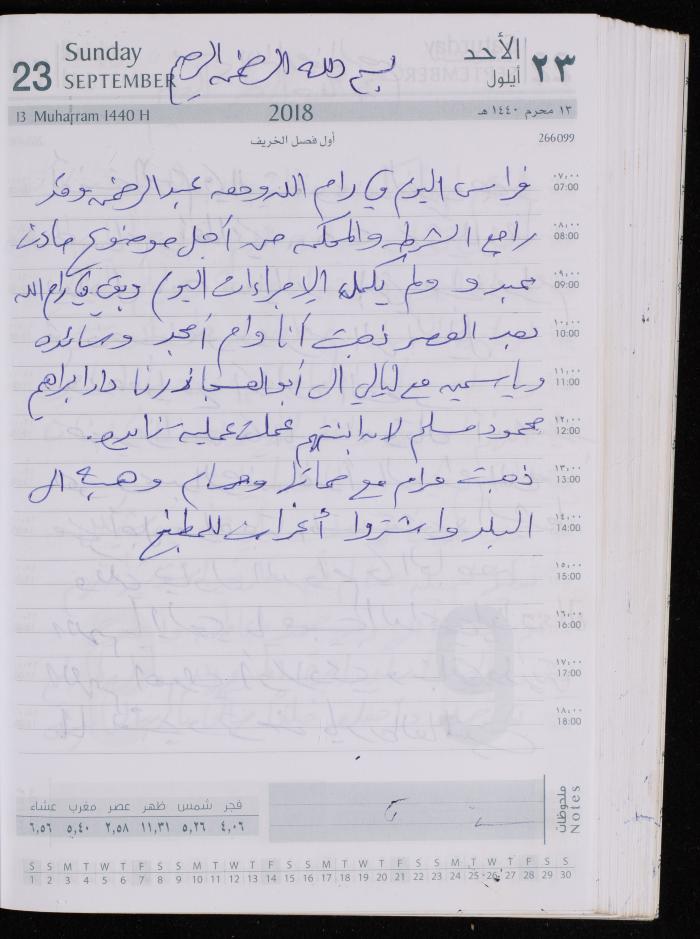 Sunday
23 SEPTEMBER
بسم الله الرحمن الرحيم
الأحد
٢٣ أيلول
13 Muharram 1440 H
2018
١٣ محرم ١٤٤٠ هـ
أول فصل الخريف
266099
٠٧,٠٠
07:00
فراس اليوم في رام الله ومعه عبد الرحمن وقد
٠٨,٠٠
08:00
راجع الشرطه والمحكمه من أجل موضوع حادث
٠٩,٠٠
09:00
ولم يكمل الإجراءات اليوم وبقي في رام الله
١٠,٠٠
10:00
بعد العصر ذهبت أنا وام أمجد وسائده
١١,٠٠
11:00
وياسمين مع ليالي الى أبو العسجا زرنا دار ابراهيم
١٢,٠٠
12:00
محمود مسلم لان ابنتهم عملت عمليه زايده.
١٣,٠٠
13:00
ذهبت مرام مع حماتها وحسام وهبة الى
١٤,٠٠
14:00
البلد واشتروا أغراض للمطبخ
١٥,٠٠
15:00
١٦,٠٠
16:00
١٧,٠٠
17:00
١٨,٠٠
18:00
فجر شمس ظهر عصر مغرب عشاء
٤,٠٦ ٥,٢٦ ١١,٣١ ٢,٥٨ ٥,٤٠ ٦,٥٦
ملحوظات
Notes
S S M T W T F S S M T W T F S S M T W T F S S M T W T F S S
1 2 3 4 5 6 7 8 9 10 11 12 13 14 15 16 17 18 19 20 21 22 23 24 25 26 27 28 29 30